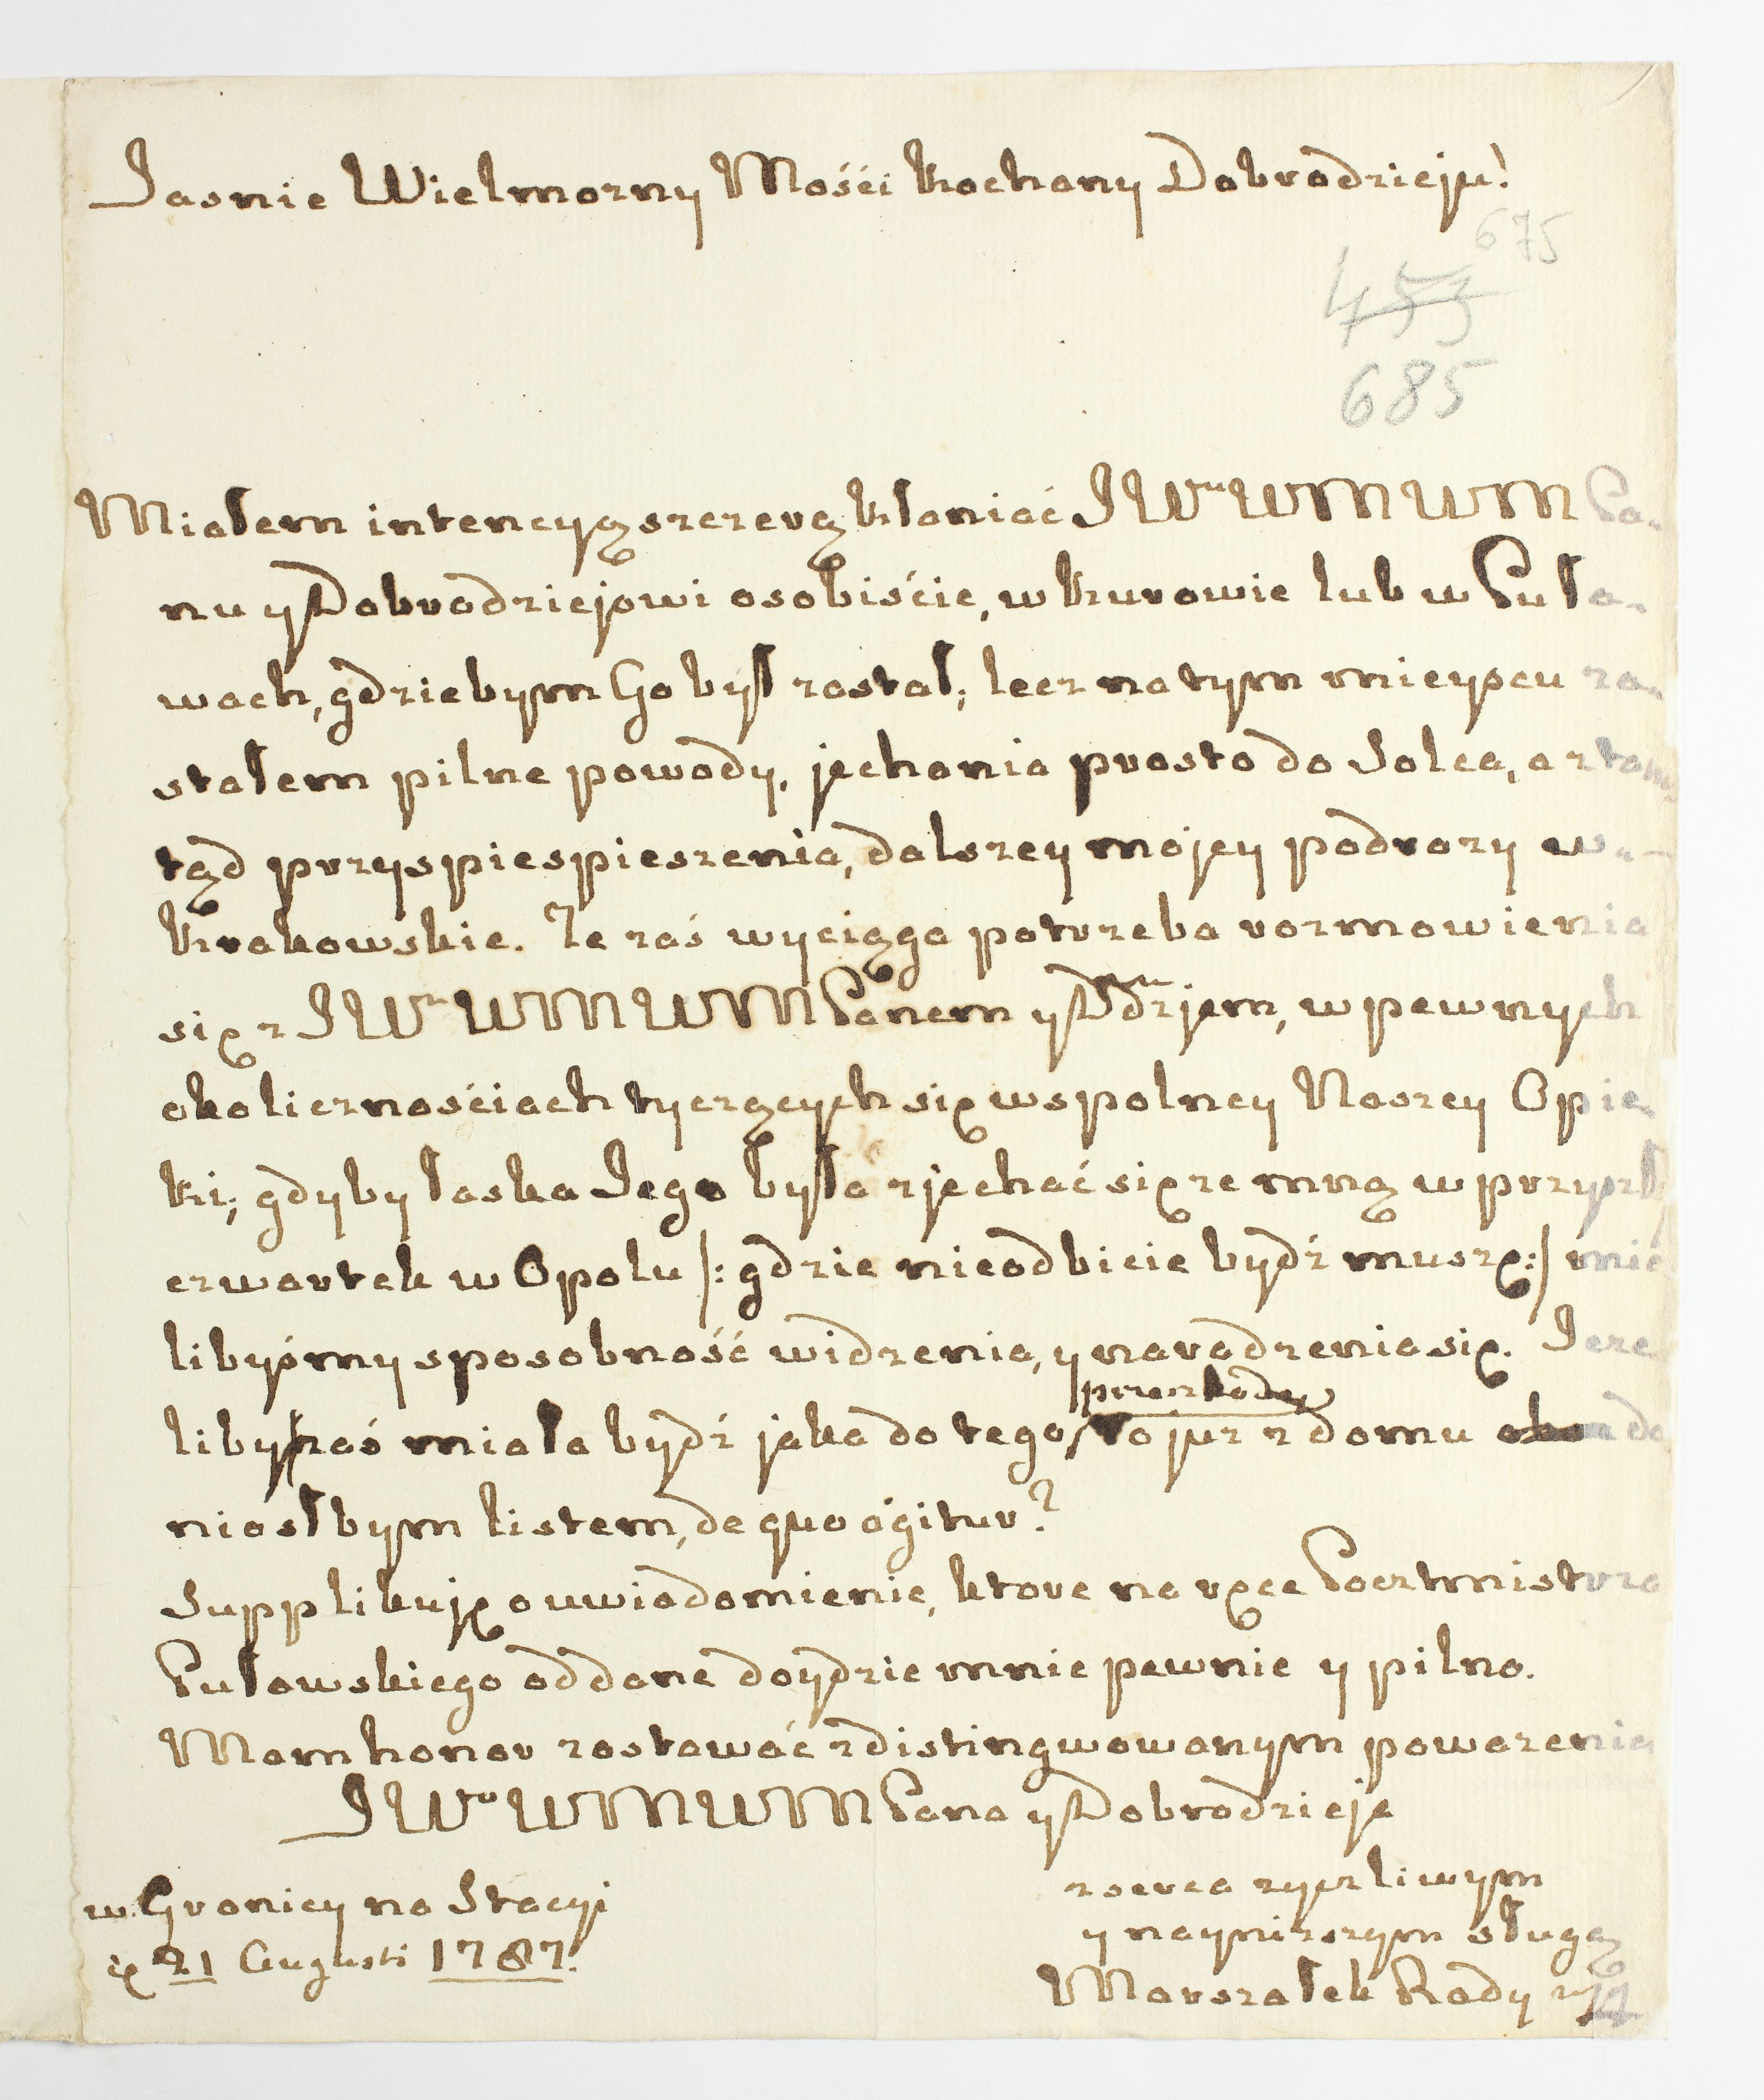 Jasnie Wielmozny Mośći Kochany Dobrodzieju!
675
453
685
Miałem intencyą szczerą kłaniać JWu WM WM Pa-
nu y Dobrodziejowi osobiśćie, w Kurowie lub w Puła-
wach, gdziebym Go był zastał; lecz na tym mieyscu za-
stałem pilne powody, jechania prosto do Solca, a ztam
tąd przyspiespieszenia, dalszey mojey podrozy w
Krakowskie. Ze zaś wyciąga potrzeba rozmowienia
się z JWm WM WM Panem y Ddzjem, w pewnych
okolicznośćiach tyczących się wspolney Naszey Opie-
ki; gdyby łaska Jego była zjechać się ze mną w przyszł
czwartek w Opolu /: gdzie nieodbicie bydź muszę :/ mie
libyśmy sposobność widzenia, y naradzenia się. Jeze
liby zaś miała bydź jaka do tego przeszkoda, to juz z domu do
niosłbym listem, de quo agitur?
Supplikuję o uwiadomienie, ktore na ręce Pocztmistrza
Puławskiego oddane doydzie mnie pewnie y pilno.
Mam honor zostawać z distingwowanym powazenia
JWo WM WM Pana y Dobrodzieja
w Granicy na Stacyi
21 Augusti 1787.
z serca zyczliwym
y nayniższym sługą
Marszałek Rady